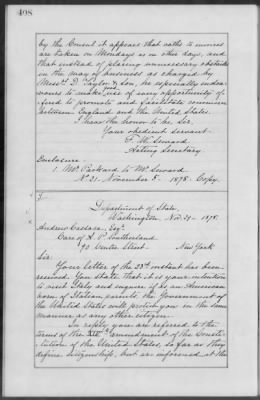 408
by the Consul it appears that oaths to invoices
are taken on Mondays as on other days, and
that instead of placing unnecessary obstacles
in the way of business as charged by
Messrs D. Taylor & Son, he especially endeav-
ours to make use of every opportunity of-
fered to promote and facilitate commerce
between England and the United States.
I have the honor to be, Sir,
Your obedient servant
F. W. Seward
Acting Secretary
Enclosure:
1. Mr. Packard to Mr. Seward
No 21. November 8. 1878. Copy.
Department of State,
Washington, Nov. 29. 1878.
Andrew Cassara, Esqr.
Care of A. P. Southerland
93 Centre Street. New York
Sir:
Your letter of the 23d instant has been
received. You state that it is your intention
to visit Italy and enquire if as an American
born of Italian parents the Government of
the United States will protect you in the same
manner as any other citizen.
In reply you are referred to the
terms of the XIVth amendment of the Consti-
tution of the United States, so far as they
define citizenship, but are informed at the